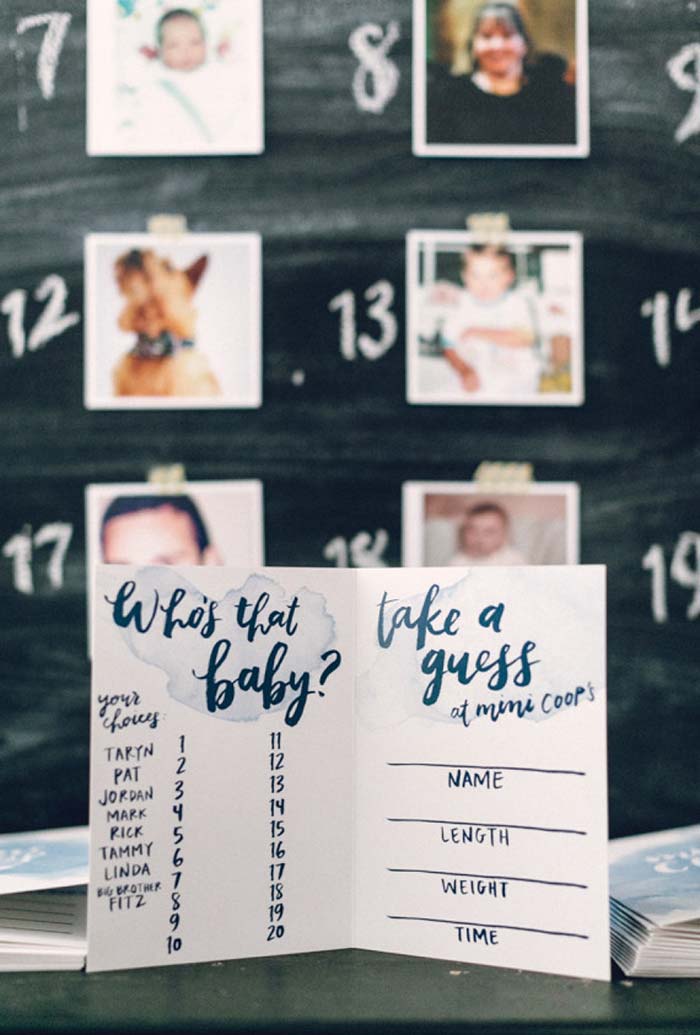 7
8
9
12
13
14
17
18
19
Who's that
baby?
your
choices:
TARYN
PAT
JORDAN
MARK
RICK
TAMMY
LINDA
BIG BROTHER
FITZ
1
2
3
4
5
6
7
8
9
10
11
12
13
14
15
16
17
18
19
20
take a
guess
at mini COOP'S
NAME
LENGTH
WEIGHT
TIME